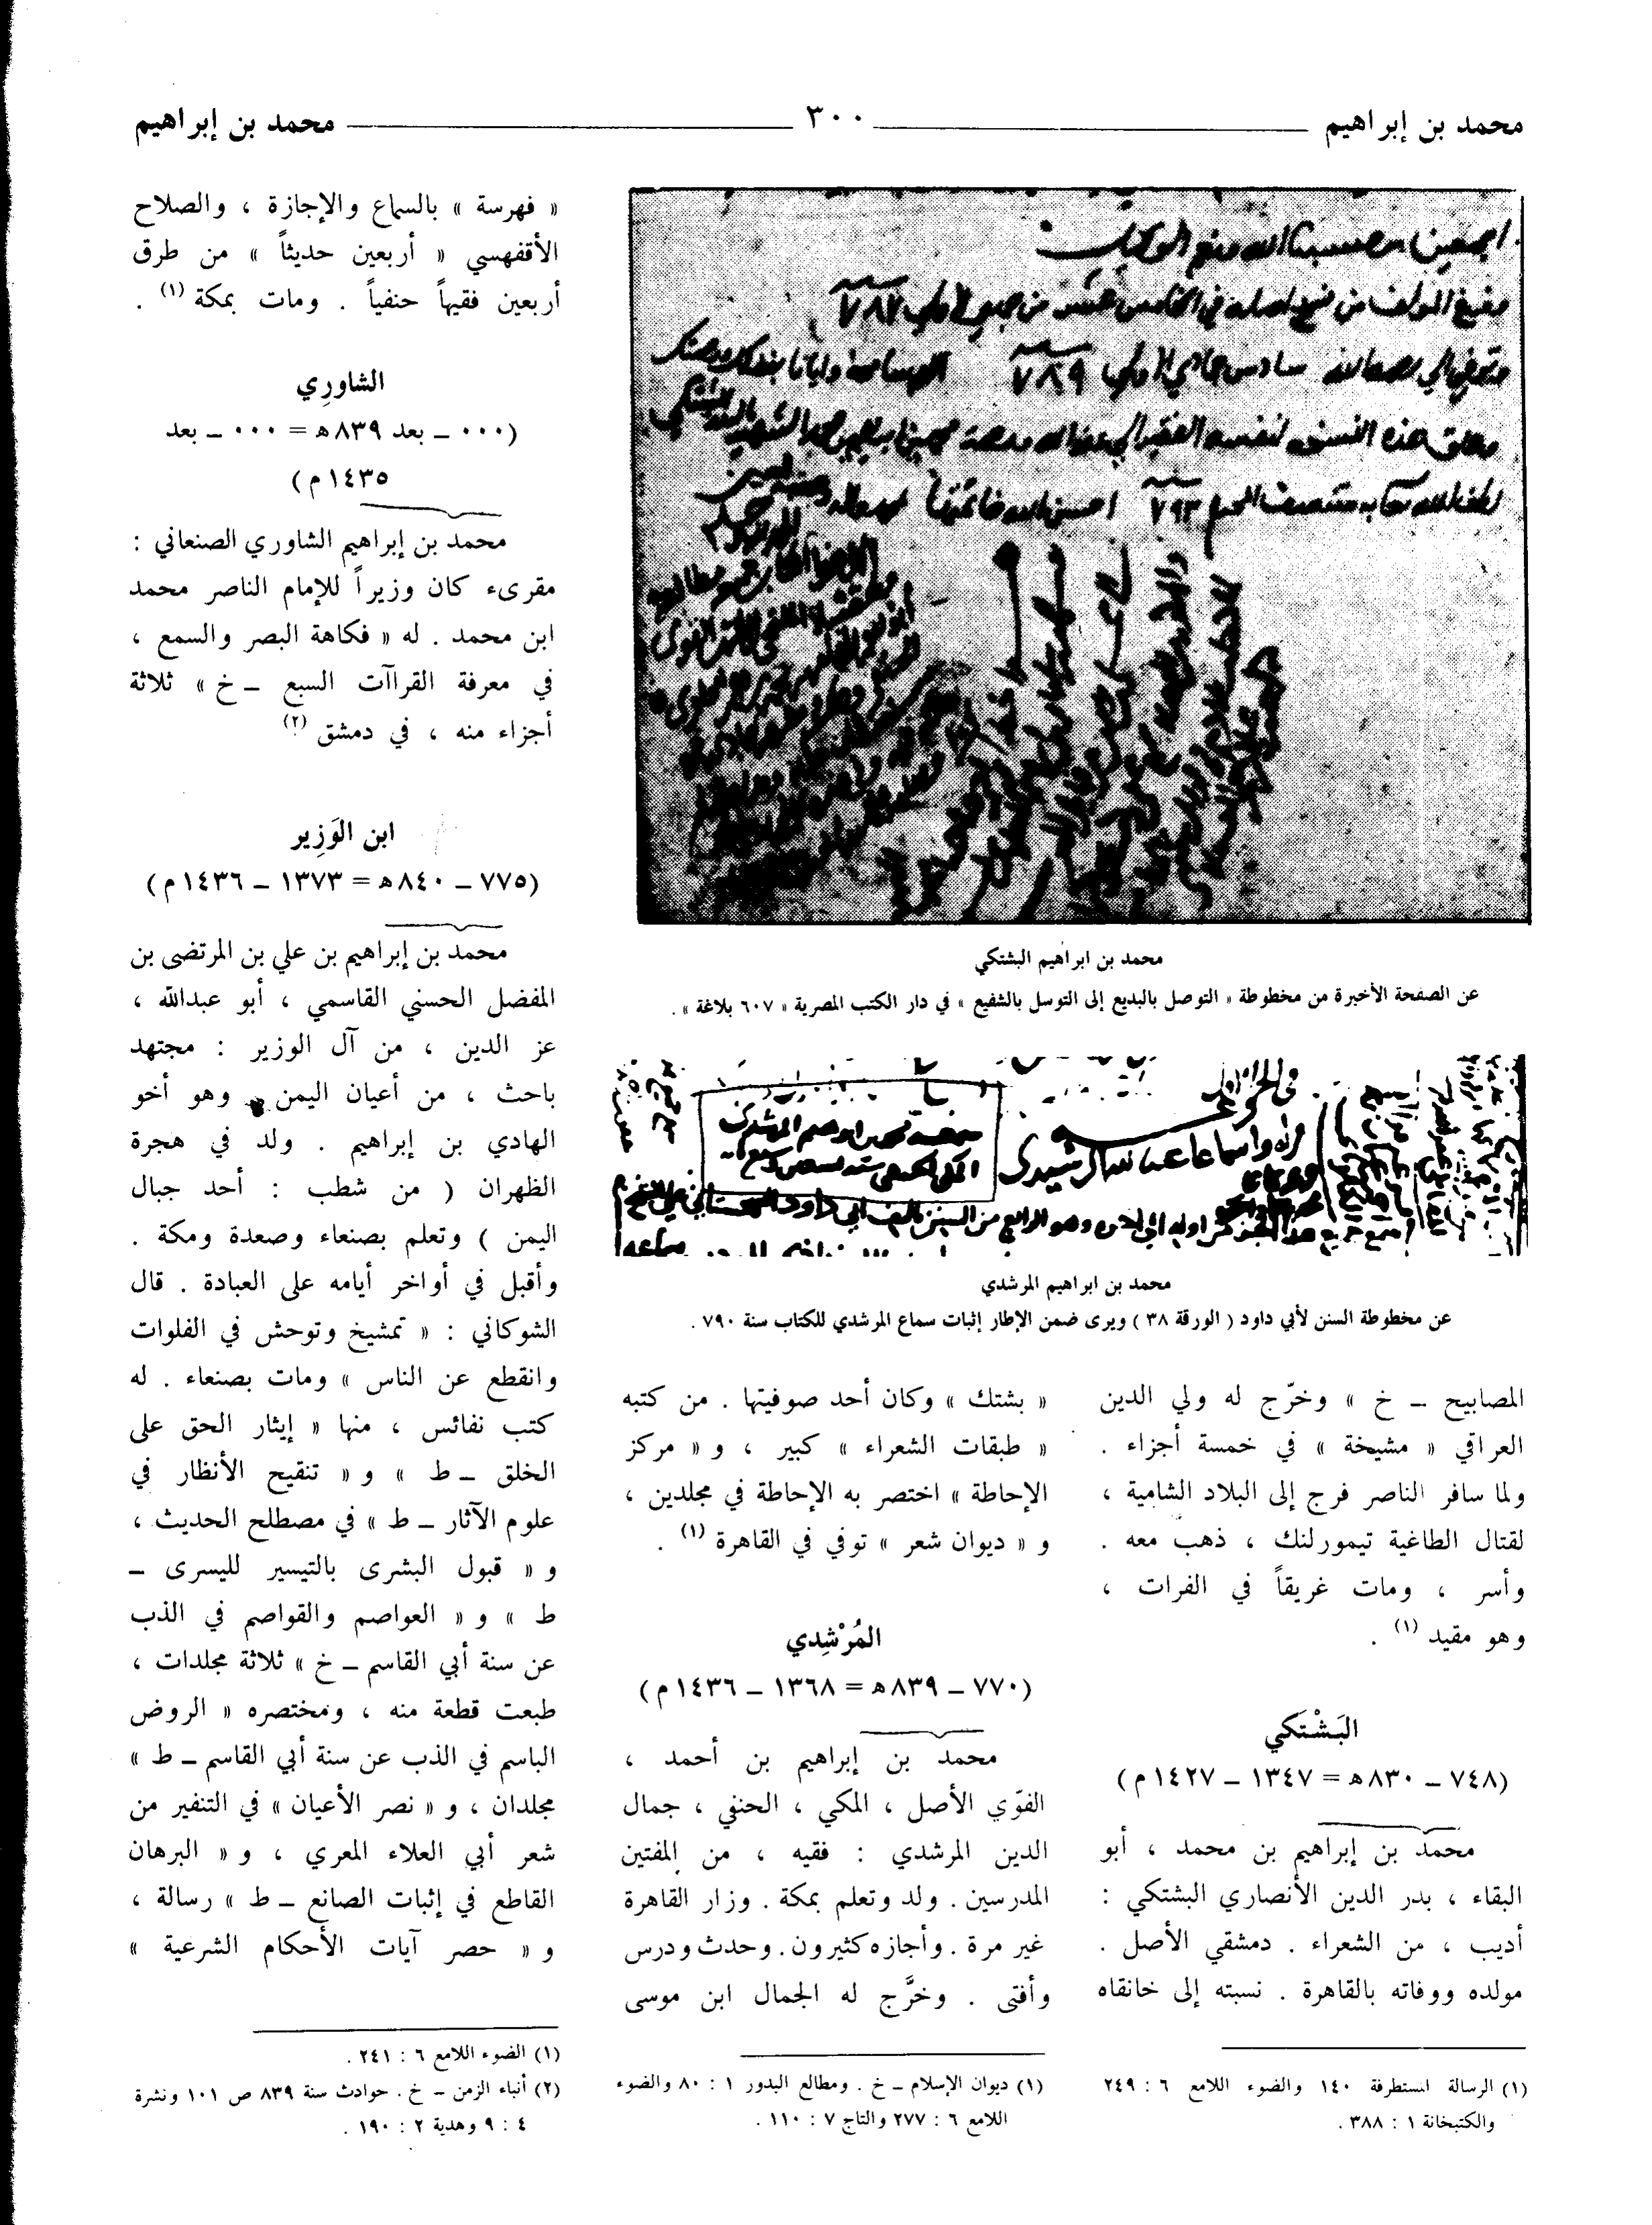 محمد بن إبراهيم ــــ ٣٠٠ ــــ محمد بن إبراهيم
محمد بن ابراهيم البشتكي
عن الصفحة الأخيرة من مخطوطة « التوصل بالبديع إلى التوسل بالشفيع » في دار الكتب المصرية « ٦٠٧ بلاغة » .
محمد بن ابراهيم المرشدي
عن مخطوطة السنن لأبي داود ( الورقة ٣٨ ) ويرى ضمن الإطار إثبات سماع المرشدي للكتاب سنة ٧٩٠ .
المصابيح ــ خ » وخرّج له ولي الدين
العراقي « مشيخة » في خمسة أجزاء .
ولما سافر الناصر فرج إلى البلاد الشامية ،
لقتال الطاغية تيمورلنك ، ذهب معه .
وأسر ، ومات غريقاً في الفرات ،
وهو مقيد (١) .
البَشْتَكي
(٧٤٨ ــ ٨٣٠ ه = ١٣٤٧ ــ ١٤٢٧ م)
محمد بن إبراهيم بن محمد ، أبو
البقاء ، بدر الدين الأنصاري البشتكي :
أديب ، من الشعراء . دمشقي الأصل .
مولده ووفاته بالقاهرة . نسبته إلى خانقاه
(١) الرسالة المستطرفة ١٤٠ والضوء اللامع ٦ : ٢٤٩
والكتبخانة ١ : ٣٨٨ .
« بشتك » وكان أحد صوفيتها . من كتبه
« طبقات الشعراء » كبير ، و « مركز
الإحاطة » اختصر به الإحاطة في مجلدين ،
و « ديوان شعر » توفي في القاهرة (١) .
المُرْشِدي
(٧٧٠ ــ ٨٣٩ ه = ١٣٦٨ ــ ١٤٣٦ م)
محمد بن إبراهيم بن أحمد ،
الفوّي الأصل ، المكي ، الحنفي ، جمال
الدين المرشدي : فقيه ، من المفتين
المدرسين . ولد وتعلم بمكة . وزار القاهرة
غير مرة . وأجازه كثيرون . وحدث ودرس
وأفتى . وخرَّج له الجمال ابن موسى
(١) ديوان الإسلام ــ خ . ومطالع البدور ١ : ٨٠ والضوء
اللامع ٦ : ٢٧٧ والتاج ٧ : ١١٠ .
« فهرسة » بالسماع والإجازة ، والصلاح
الأقفهسي « أربعين حديثاً » من طرق
أربعين فقيهاً حنفياً . ومات بمكة (١) .
الشاوِرِي
(٠٠٠ ــ بعد ٨٣٩ ه = ٠٠٠ ــ بعد
١٤٣٥ م)
محمد بن إبراهيم الشاوري الصنعاني :
مقرىء كان وزيراً للإمام الناصر محمد
ابن محمد . له « فكاهة البصر والسمع ،
في معرفة القراآت السبع ــ خ » ثلاثة
أجزاء منه ، في دمشق (٢)
ابن الوَزِير
(٧٧٥ ــ ٨٤٠ ه = ١٣٧٣ ــ ١٤٣٦ م)
محمد بن إبراهيم بن علي بن المرتضى بن
المفضل الحسني القاسمي ، أبو عبدالله ،
عز الدين ، من آل الوزير : مجتهد
باحث ، من أعيان اليمن وهو أخو
الهادي بن إبراهيم . ولد في هجرة
الظهران ( من شطب : أحد جبال
اليمن ) وتعلم بصنعاء وصعدة ومكة .
وأقبل في أواخر أيامه على العبادة . قال
الشوكاني : « تمشيخ وتوحش في الفلوات
وانقطع عن الناس » ومات بصنعاء . له
كتب نفائس ، منها « إيثار الحق على
الخلق ــ ط » و « تنقيح الأنظار في
علوم الآثار ــ ط » في مصطلح الحديث ،
و « قبول البشرى بالتيسير لليسرى ــ
ط » و « العواصم والقواصم في الذب
عن سنة أبي القاسم ــ خ » ثلاثة مجلدات ،
طبعت قطعة منه ، ومختصره « الروض
الباسم في الذب عن سنة أبي القاسم ــ ط »
مجلدان ، و « نصر الأعيان » في التنفير من
شعر أبي العلاء المعري ، و « البرهان
القاطع في إثبات الصانع ــ ط » رسالة ،
و « حصر آيات الأحكام الشرعية »
(١) الضوء اللامع ٦ : ٢٤١ .
(٢) أنباء الزمن ــ خ . حوادث سنة ٨٣٩ ص ١٠١ ونشرة
٤ : ٩ وهدية ٢ : ١٩٠ .